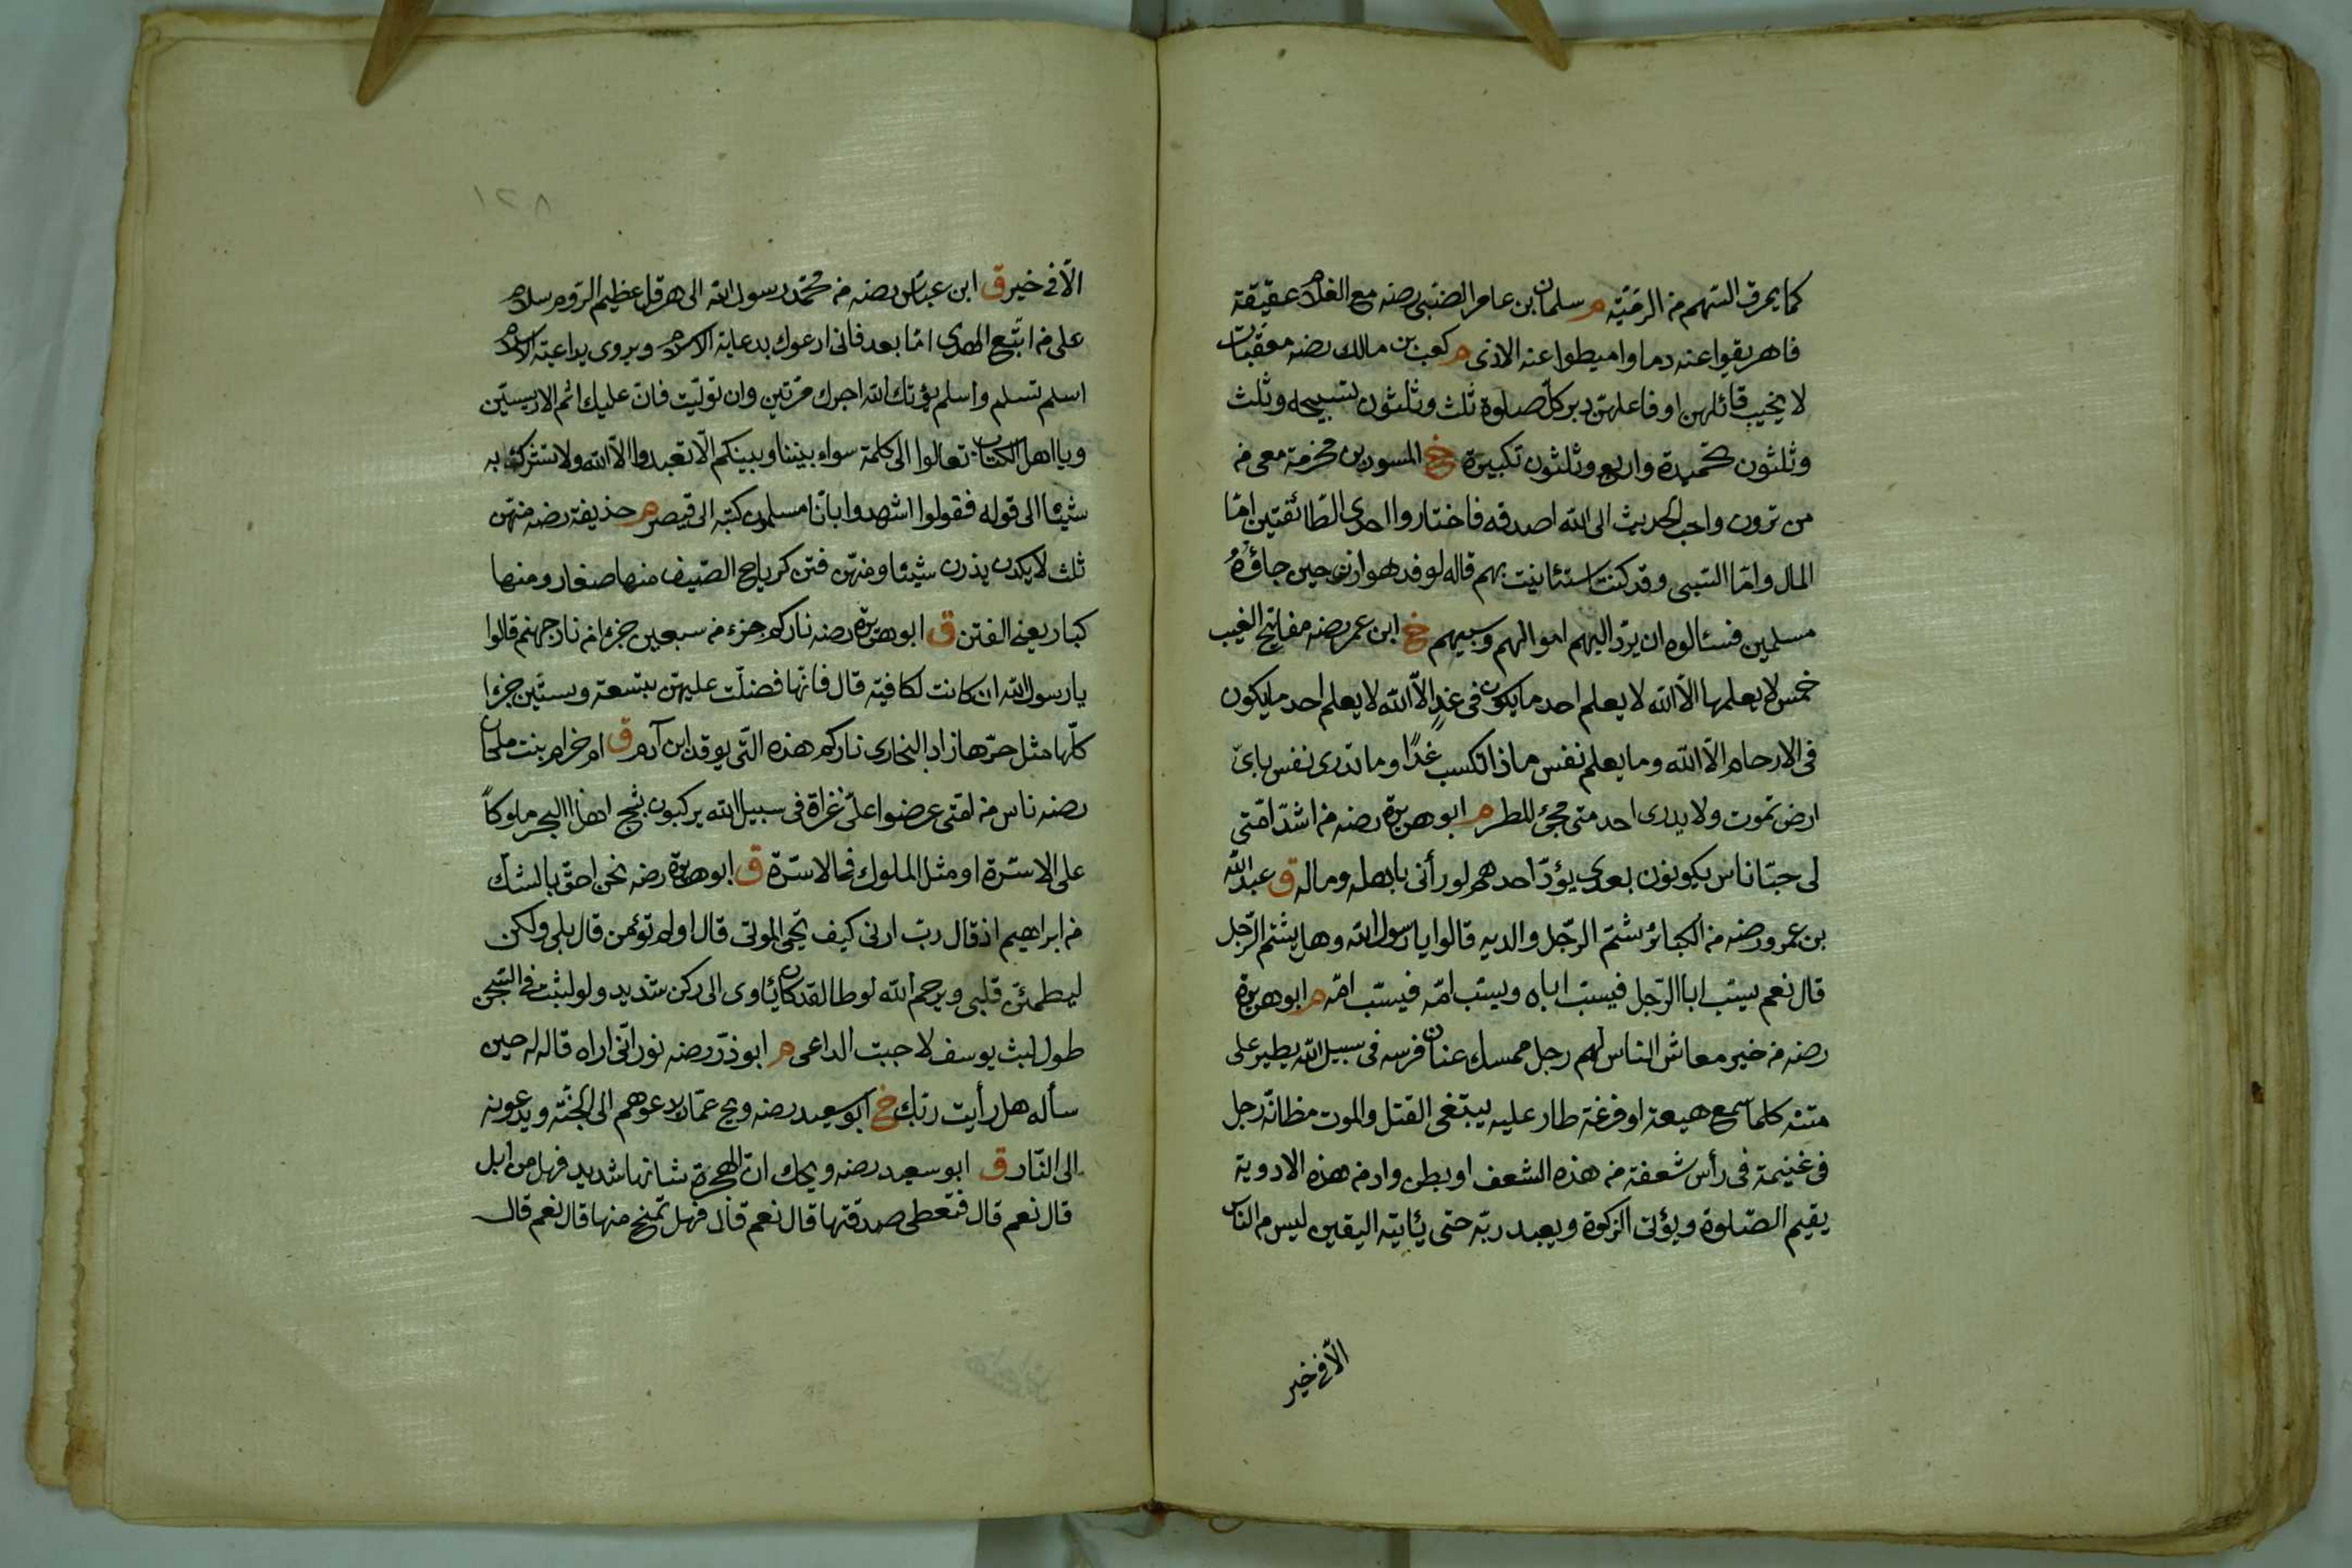 كما يمرق السّهم من الرّميّة م سلمان بن عامر الضّبّي رضه مع الغلام عقيقة
فاهريقوا عنه دما واميطوا عنه الاذى م كعب بن مالك رضه معقّبات
لا يخيب قائلهن او فاعلهنّ دبر كلّ صلوة ثلث وثلثون تسبيحة وثلث
وثلثون تحميدة واربع وثلثون تكبيرة خ المسور بن مخرمة معى من
من ترون واحب الحديث الى الله اصدقه فاختاروا احدى الطّائفتين امّا
المال وامّا السّبى وقد كنت استئانيت بهم قاله لوفد هوازن حين جاؤه
مسلمين فسئالوه ان يردّ اليهم اموالهم وسبيهم خ ابن عمر رضه مفاتيح الغيب
خمس لا يعلمها الّا الله لا يعلم احد ما يكون فى غدٍ الّا الله لا يعلم احد ما يكون
فى الارحام الّا الله وما يعلم نفس ماذا تكسب غدًا وما تدرى نفس باىّ
ارض تموت ولا يدرى احد متى مجئ المطر م ابو هريرة رضه من اشدّ امّتى
لى حبّا ناس يكونون بعدى يودّ احدهم لو رأنى باهله وماله ق عبد الله
بن عمرو رضه من الكبائر شتم الرّجل والديه قالوا يا رسول الله وهل يشتم الرّجل
قال نعم يسبّ ابا الرّجل فيسبّ اباه ويسبّ امّه فيسبّ امّه م ابو هريرة
رضه من خير معاش الناس لهم رجل ممسك عنان فرسه فى سبيل الله يطير على
متنه كلما سمع هيعة او فزعة طار عليه يبتغى القتل والموت مظانّه رجل
فى غنيمة فى رأس شعفة من هذه الشعف او بطن واد من هذه الاودية
يقيم الصّلوة ويؤتى الزكوة ويعبد ربّه حتى يئاتيه اليقين ليس من الناس
الّا فى خير
١٢٨
الّا فى خير ق ابن عبّاس رضه من محمّد رسول الله الى هرقل عظيم الرّوم سلام
على من اتّبع الهدى امّا بعد فانى ادعوك بدعاية الاسلام ويروى بداعية الاسلام
اسلم تسلم واسلم يؤتك الله اجرك مرّتين وان تولّيت فانّ عليك اثم الاريسيّين
ويا اهل الكتاب تعالوا الى كلمة سواء بيننا وبينكم الّا نعبد الّا الله ولا نشرك به
شيئا الى قوله فقولوا اشهدوا بانّا مسلمون كتبه الى قيصر م حذيفة رضه منهنّ
ثلث لا يكدن يذرن شيئا ومنهنّ فتن كرياح الصّيف منها صغار ومنها
كبار يعنى الفتن ق ابو هريرة رضه ناركم جزء من سبعين جزءا من نار جهنم قالوا
يا رسول الله ان كانت لكافية قال فانّها فضلّت عليهنّ بتسعة وستّين جزءا
كلّها مثل حرّها زاد البخارى ناركم هذه التّى يوقد ابن آدم ق ام حرام بنت ملحان
رضه ناس من امّتى عرضوا علىّ غزاة فى سبيل الله يركبون ثبج هذا البحر ملوكاً
على الاسرّة او مثل الملوك على الاسرّة ق ابو هريرة رضه نحن احقّ بالشك
من ابراهيم اذ قال ربّ ارنى كيف تحيى الموتى قال اولم تؤمن قال بلى ولكن
ليطمئنّ قلبى ويرحم الله لوطا لقد كان يئاوى الى ركن شديد ولو لبثت فى السّجن
طول لبث يوسف لاجبت الداعى م ابو ذرّ رضه نور انّى اراه قاله له حين
سأله هل رأيت ربّك خ ابو سعيد رضه ويح عمّار يدعوهم الى الجنّة ويدعونه
الى النّار ق ابو سعيد رضه ويحك انّ الهجرة شانها شديد فهل من ابل
قال نعم قال فتعطى صدقتها قال نعم قال فهل تمنح منها قال نعم قال